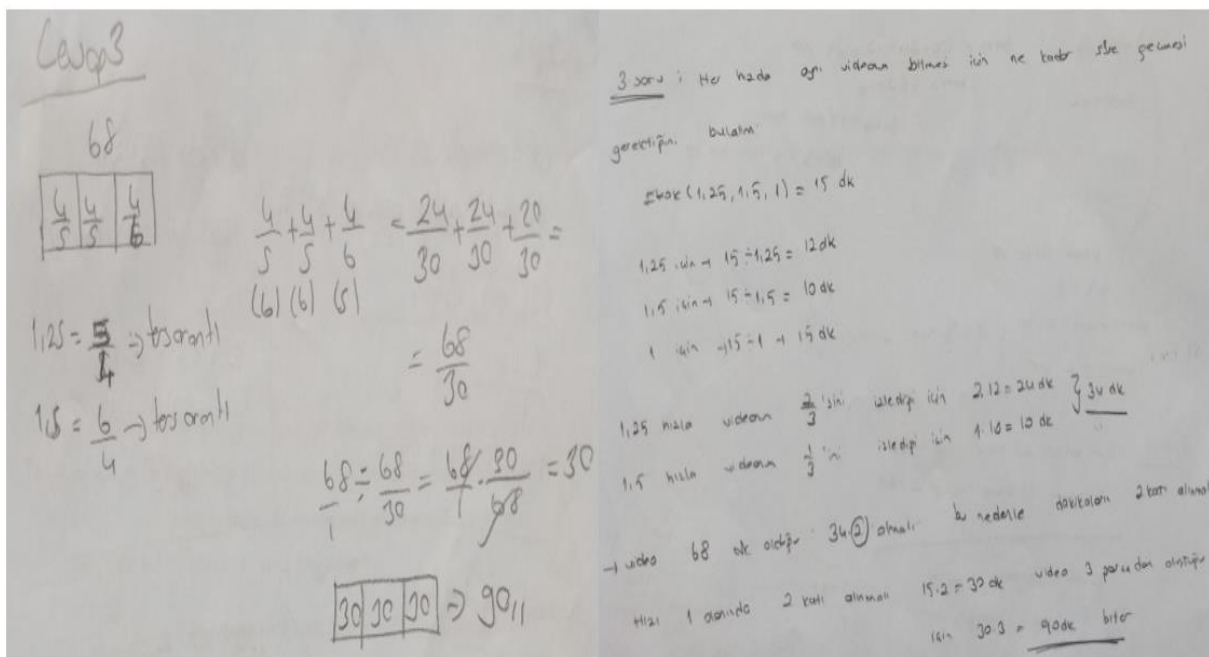 Cevap3
68
4/5 4/5 4/6
4/5 + 4/5 + 4/6 = 24/30 + 24/30 + 20/30 =
(6) (6) (5)
1,25 = 5/4 → ters orantı
= 68/30
1,5 = 6/4 → ters orantı
68/1 ÷ 68/30 = 68/1 . 30/68 = 30
30 30 30 ⇒ 90,,
3 soru : Her hızda aynı videonun bitmesi için ne kadar süre geçmesi
gerektiğini bulalım
Ekok (1,25, 1,5, 1) = 15 dk
1,25 için → 15 ÷ 1,25 = 12 dk
1,5 için → 15 ÷ 1,5 = 10 dk
1 için → 15 ÷ 1 → 15 dk
1,25 hızla videonun 2/3 'sini izlediği için 2.12 = 24 dk } 34 dk
1,5 hızla videonun 1/3 'ini izlediği için 1.10 = 10 dk
→ video 68 dk olduğu 34.2 olmalı bu nedenle dakikaların 2 katı alınmal
Hızı 1 olanında 2 katı alınmalı 15.2 = 30 dk video 3 parçadan oluştuğu
için 30.3 = 90dk biter